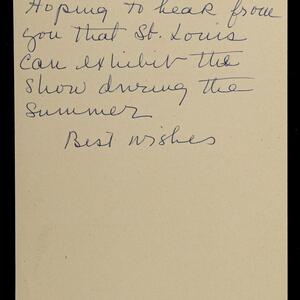 Hoping to hear from
you that St. Louis
can exhibit the
show during the
summer
Best wishes